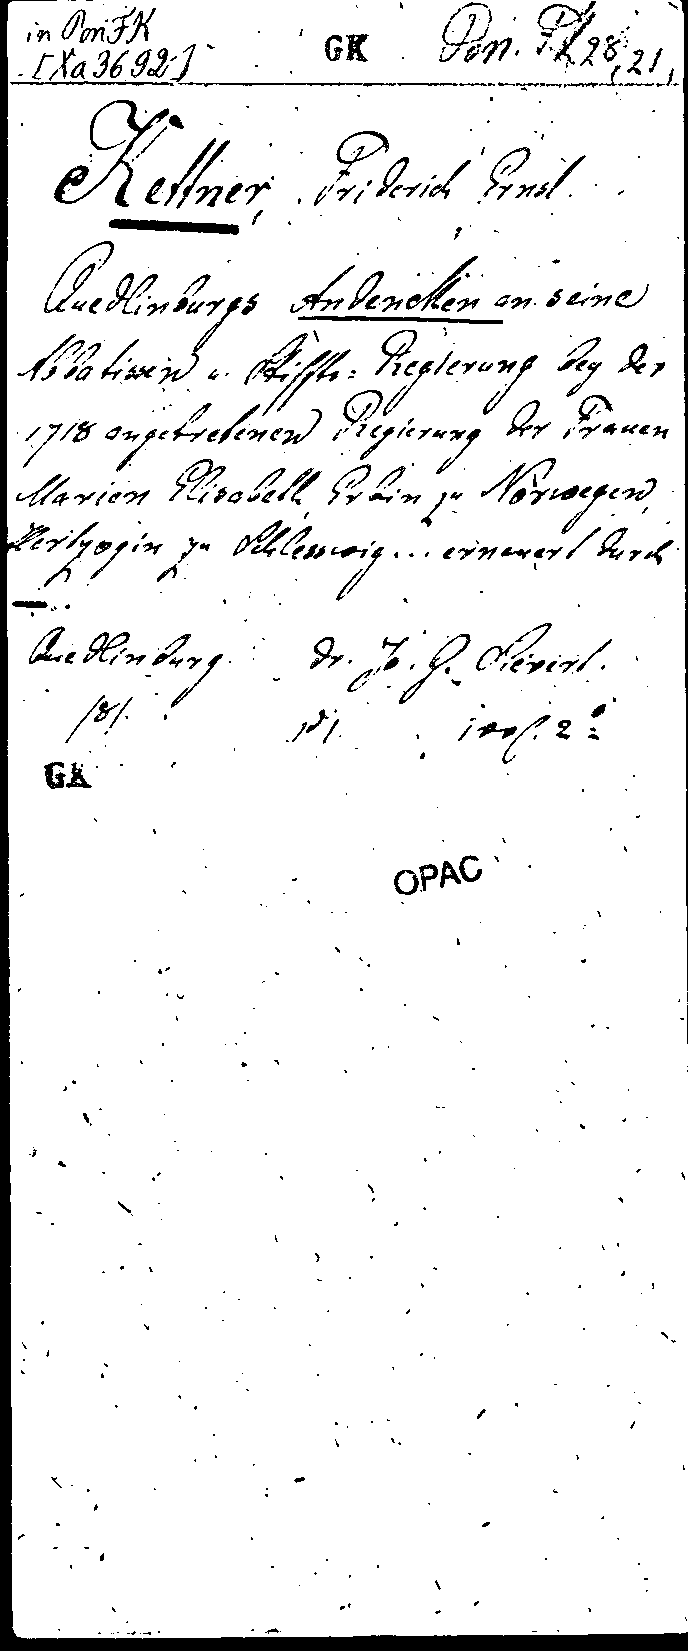 in Pon FK GK Pon. FK 28,21,
[Xa 3692]
Kettner, Friderich Ernst.
Quedlinburgs Andencken an seine
Abbatissin u. Stiffts-Regierung bey der
1718 angetretenen Regierung der Frauen
Marien Elisabeth, Erbin zu Norwegen,
Hertzogin zu Schleswig... erneuert durch
—.
Quedlinburg dr. Jo. G. Sievert.
2°
GK
OPAC